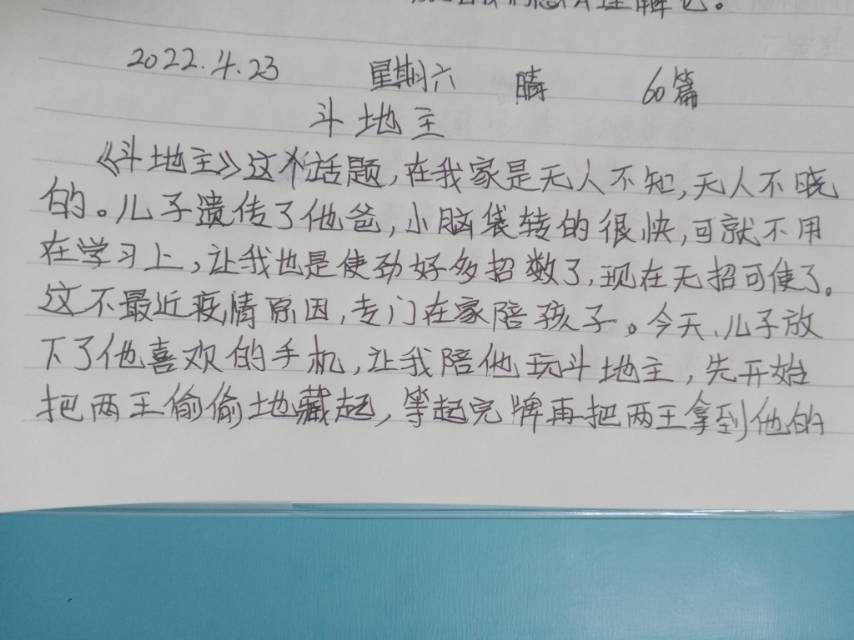 理解它。
2022.4.23 星期六 晴 60篇
斗地主
《斗地主》这个话题,在我家是无人不知,无人不晓
的。儿子遗传了他爸,小脑袋转的很快,可就不用
在学习上,让我也是使劲好多招数了,现在无招可使了。
这不最近疫情原因,专门在家陪孩子。今天、儿子放
下了他喜欢的手机,让我陪他玩斗地主,先开始
把两王偷偷地藏起,等起完牌再把两王拿到他的